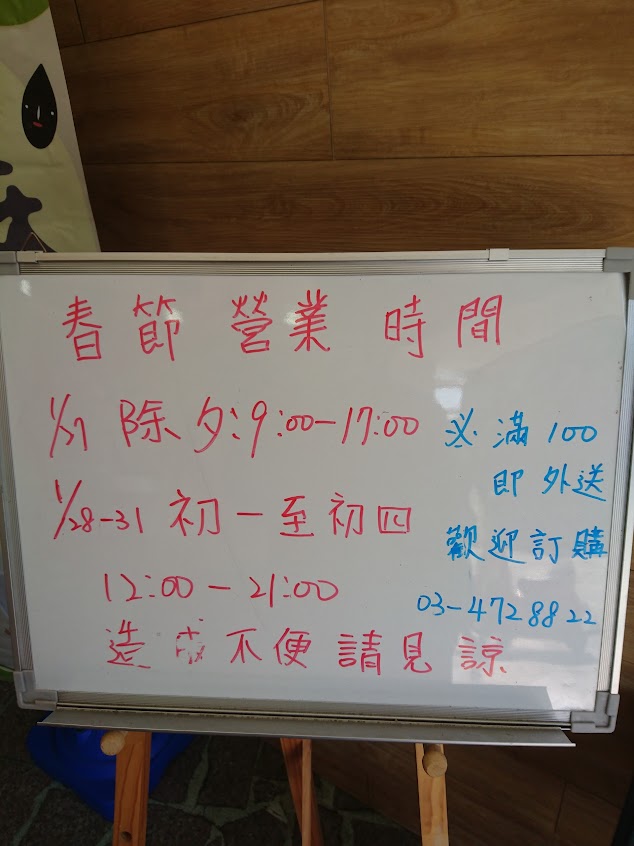 春節 營業 時間
1/27 除夕:9:00-17:00
1/28-31 初一至初四
12:00-21:00
造成不便請見諒
※滿100
即外送
歡迎訂購
03-4728822